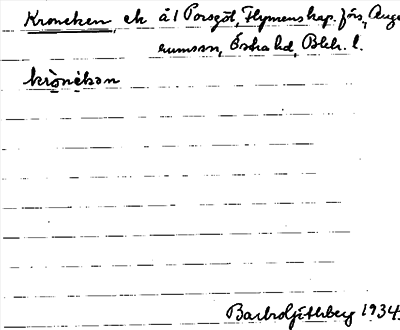 Kroneken, ek å 1 Porsgöt, Flymenskap. förs, Auge
rumssn, Östra hd, Blek. l.
krònèkən
Barbro Ljüthberg 1934.